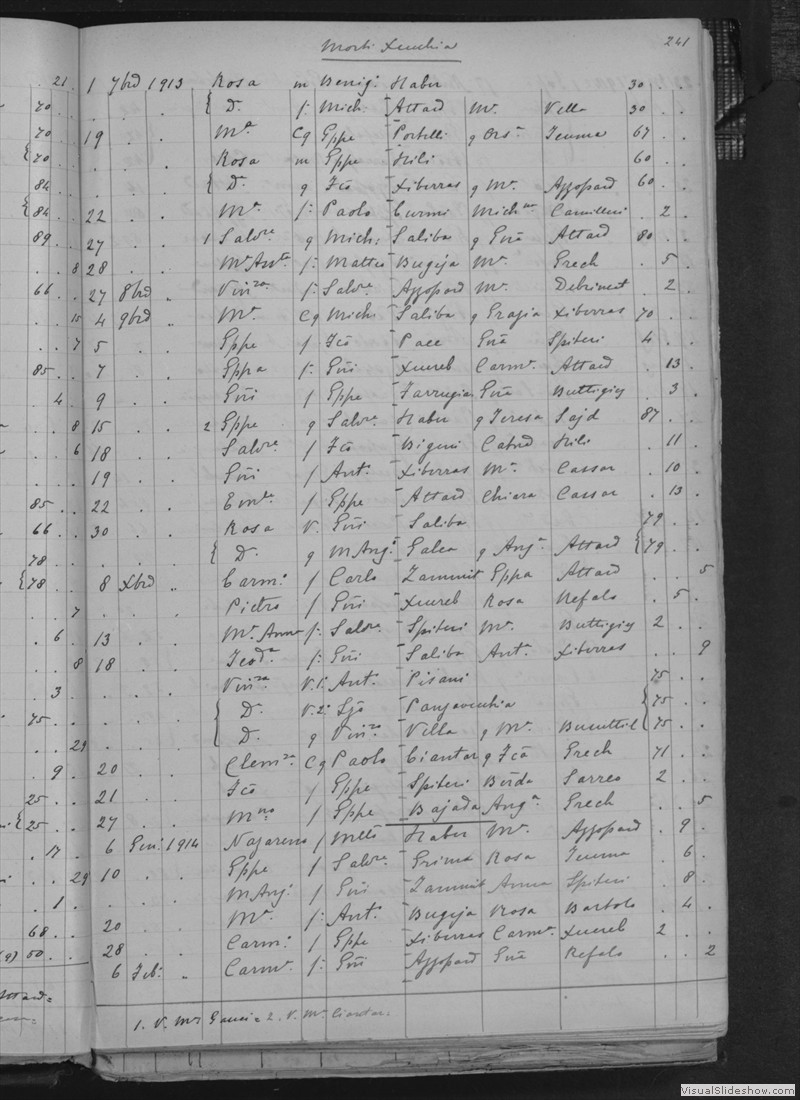 Morti Xeuchia 241
21. 1 7brd 1913 Rosa m Benig: Haber 30
70 { D. f: Mich: Attard Mª. Vella 30
70 19 . . Mª Cg Eppe Portelli g Ors: Teuma 67
{70 . . . Rosa m Eppe Hili 60
84 . . . { D. g Fcõ Xiberras g Mª. Azzopard 60
{84 22 . . Mª. f: Paolo Curmi Camilleri . 2
89 27 . . 1 Salvre g Mich: Saliba g Gña Attard 80
8 28 . . Mª Antª f: Matteo Bugeja Mª. Grech . 5
66 27 8brd „ f: Salvre Azzopard Mª. Debrincat . 2
15 4 9brd „ Mª. Cg Mich: Saliba g Grazia Xiberras 70
7 5 . . Eppe f Fcõ Pace Gña Spiteri 4
85 7 . . Eppa f: Gñi Xuereb Carmª. Attard . 13
4 9 . . Gñi f Eppe Farrugia Gña Buttigieg . 3
8 15 . . 2 Eppe g Salvre Haber g Teresa Sajd 87
6 18 . . Salvre f Fcõ Bigeni Hili . 11
. 19 . . Gñi f Antº. Xiberras Mª. Cassar . 10
85 22 . . f Eppe Attard Chiara Cassar . 13
66 30 . . Rosa V. Gñi Saliba 79
78 { D. g M Ang: Galea g Angª Attard {79
{78 8 Xbrd „ Carm: f Carlo Zammit Eppa Attard . . 5
7 . . . Pietro f Gñi Xuereb Rosa Refalo . 5
6 13 . . Mª. Anna f: Salvre Spiteri Mª. Buttigieg 2
8 18 . . Teodª f: Gñi Saliba Antª. Xiberras . . 9
3 . . . V.1: Antº. Pisani 75
75 { D. V.2: {75
29 { D. g Villa g Mª. Busuttil {75
9 20 . . Clem Cg Paolo Ciantar g Fcã Grech 71
25 21 . . Fcõ f Eppe Spiteri Sarreo 2
{25 27 . . f Eppe Bajada Angª Grech . . 5
17 6 1914 Nazareno f Haber Mª. Azzopard . 9
29 10 . . Eppe f Salvre Grima Rosa Teuma . 6
1 . . . M Ang: f Gñi Zammit Anna Spiteri . 8
68 20 . . Mª. f: Antº. Bugeja Rosa Bartolo . 4
50 28 . . Carm: f Eppe Xiberras Carmª. Xuereb 2
6 Feb: „ Carmª. f: Gñi Azzopard Gña Refalo . . 2
1. V. Mª Gauci = 2. V. Mª. Ciantar.
VisualSlideshow.com